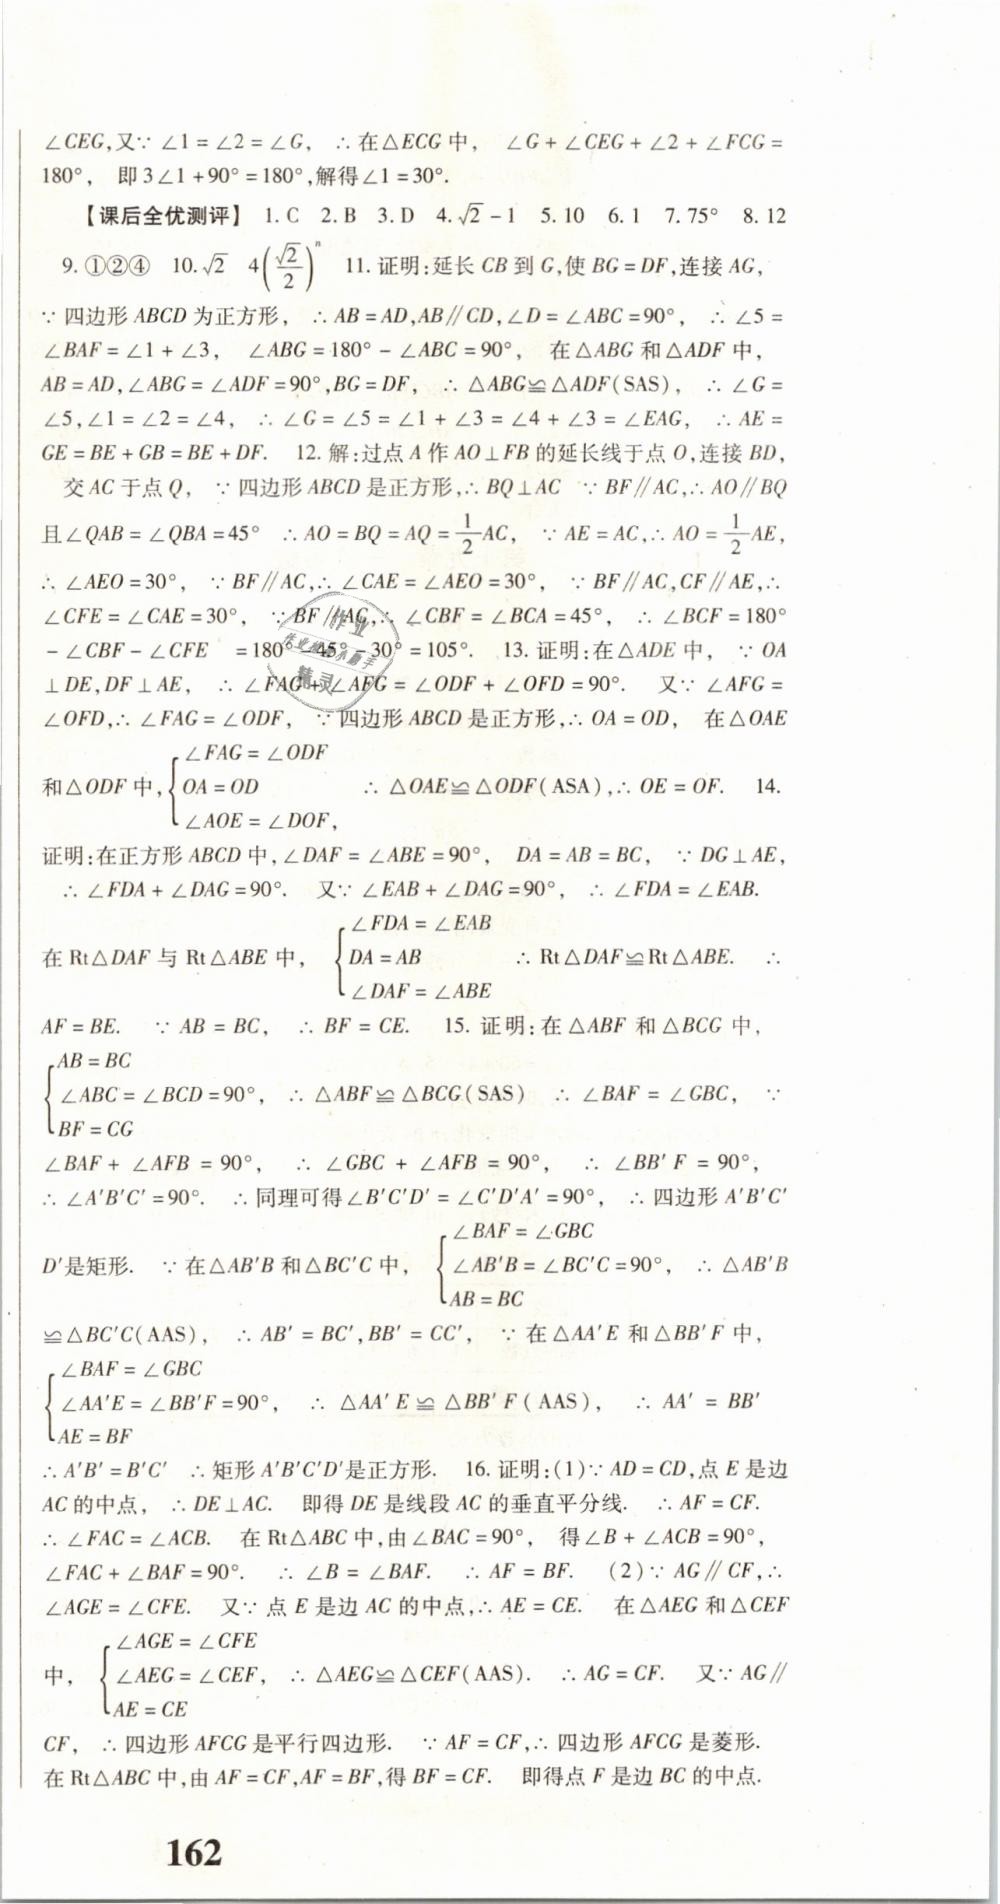 ∠CEG,又∵ ∠1 = ∠2 = ∠G, ∴在△ECG 中, ∠G + ∠CEG + ∠2 + ∠FCG =
180°, 即 3∠1 + 90° = 180°,解得∠1 = 30°.
【课后全优测评】 1. C 2. B 3. D 4. √2 - 1 5. 10 6. 1 7. 75° 8. 12
9. ①②④ 10. √2 4(√2/2)^n 11. 证明:延长 CB 到 G,使 BG = DF,连接 AG,
∵ 四边形 ABCD 为正方形, ∴ AB = AD,AB∥CD,∠D = ∠ABC = 90°, ∴ ∠5 =
∠BAF = ∠1 + ∠3, ∠ABG = 180° - ∠ABC = 90°, 在△ABG 和△ADF 中,
AB = AD,∠ABG = ∠ADF = 90°,BG = DF, ∴ △ABG≌△ADF(SAS), ∴ ∠G =
∠5,∠1 = ∠2 = ∠4, ∴ ∠G = ∠5 = ∠1 + ∠3 = ∠4 + ∠3 = ∠EAG, ∴ AE =
GE = BE + GB = BE + DF. 12. 解:过点 A 作 AO⊥FB 的延长线于点 O,连接 BD,
交 AC 于点 Q, ∵ 四边形 ABCD 是正方形,∴ BQ⊥AC ∵ BF∥AC,∴ AO∥BQ
且∠QAB = ∠QBA = 45° ∴ AO = BQ = AQ = 1/2 AC, ∵ AE = AC,∴ AO = 1/2 AE,
∴ ∠AEO = 30°, ∵ BF∥AC,∴ ∠CAE = ∠AEO = 30°, ∵ BF∥AC,CF∥AE,∴
∠CFE = ∠CAE = 30°, ∵ BF∥AC,∴ ∠CBF = ∠BCA = 45°, ∴ ∠BCF = 180°
- ∠CBF - ∠CFE = 180° - 45° - 30° = 105°. 13. 证明:在△ADE 中, ∵ OA
⊥DE,DF⊥AE, ∴ ∠FAG + ∠AFG = ∠ODF + ∠OFD = 90°. 又∵ ∠AFG =
∠OFD,∴ ∠FAG = ∠ODF, ∵ 四边形 ABCD 是正方形,∴ OA = OD, 在△OAE
∠FAG = ∠ODF
和△ODF 中,{OA = OD ∴ △OAE≌△ODF(ASA),∴ OE = OF. 14.
∠AOE = ∠DOF,
证明:在正方形 ABCD 中,∠DAF = ∠ABE = 90°, DA = AB = BC, ∵ DG⊥AE,
∴ ∠FDA + ∠DAG = 90°. 又∵ ∠EAB + ∠DAG = 90°, ∴ ∠FDA = ∠EAB.
∠FDA = ∠EAB
在 Rt△DAF 与 Rt△ABE 中, {DA = AB ∴ Rt△DAF≌Rt△ABE. ∴
∠DAF = ∠ABE
AF = BE. ∵ AB = BC, ∴ BF = CE. 15. 证明:在△ABF 和△BCG 中,
AB = BC
{∠ABC = ∠BCD = 90°, ∴ △ABF≌△BCG(SAS) ∴ ∠BAF = ∠GBC, ∵
BF = CG
∠BAF + ∠AFB = 90°, ∴ ∠GBC + ∠AFB = 90°, ∴ ∠BB′F = 90°,
∴ ∠A′B′C′ = 90°. ∴ 同理可得∠B′C′D′ = ∠C′D′A′ = 90°, ∴ 四边形 A′B′C′
∠BAF = ∠GBC
D′是矩形. ∵ 在△AB′B 和△BC′C 中, {∠AB′B = ∠BC′C = 90°, ∴ △AB′B
AB = BC
≌△BC′C(AAS), ∴ AB′ = BC′,BB′ = CC′, ∵ 在△AA′E 和△BB′F 中,
∠BAF = ∠GBC
{∠AA′E = ∠BB′F = 90°, ∴ △AA′E≌△BB′F(AAS), ∴ AA′ = BB′
AE = BF
∴ A′B′ = B′C′ ∴ 矩形 A′B′C′D′是正方形. 16. 证明:(1)∵ AD = CD,点 E 是边
AC 的中点, ∴ DE⊥AC. 即得 DE 是线段 AC 的垂直平分线. ∴ AF = CF.
∴ ∠FAC = ∠ACB. 在 Rt△ABC 中,由∠BAC = 90°, 得∠B + ∠ACB = 90°,
∠FAC + ∠BAF = 90°. ∴ ∠B = ∠BAF. ∴ AF = BF. (2)∵ AG∥CF,∴
∠AGE = ∠CFE. 又∵ 点 E 是边 AC 的中点,∴ AE = CE. 在△AEG 和△CEF
∠AGE = ∠CFE
中, {∠AEG = ∠CEF, ∴ △AEG≌△CEF(AAS). ∴ AG = CF. 又∵ AG∥
AE = CE
CF, ∴ 四边形 AFCG 是平行四边形. ∵ AF = CF,∴ 四边形 AFCG 是菱形.
在 Rt△ABC 中,由 AF = CF,AF = BF,得 BF = CF. 即得点 F 是边 BC 的中点.
162
作业
精灵